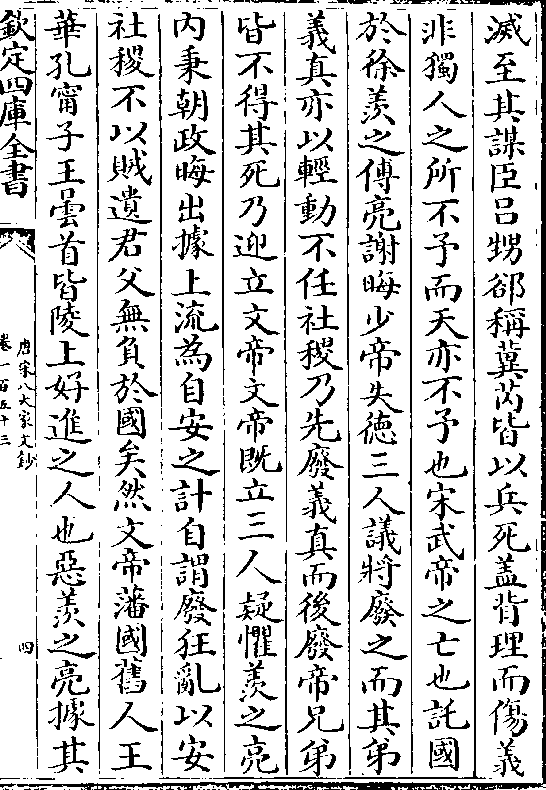 滅至其謀臣呂甥郤稱冀芮皆以兵死盖背理而傷義
非獨人之所不予而天亦不予也宋武帝之亡也託國
於徐羨之傅亮謝晦少帝失徳三人議將廢之而其弟
義真亦以輕動不任社稷乃先廢義真而後廢帝兄弟
皆不得其死乃迎立文帝文帝既立三人疑懼羨之亮
内秉朝政晦出據上流為自安之計自謂廢狂亂以安
社稷不以賊遺君父無負於國矣然文帝藩國舊人王
華孔甯子王曇首皆陵上好進之人也惡羨之亮據其
欽定四庫全書
唐宋八大家文鈔
卷一百五十三
四